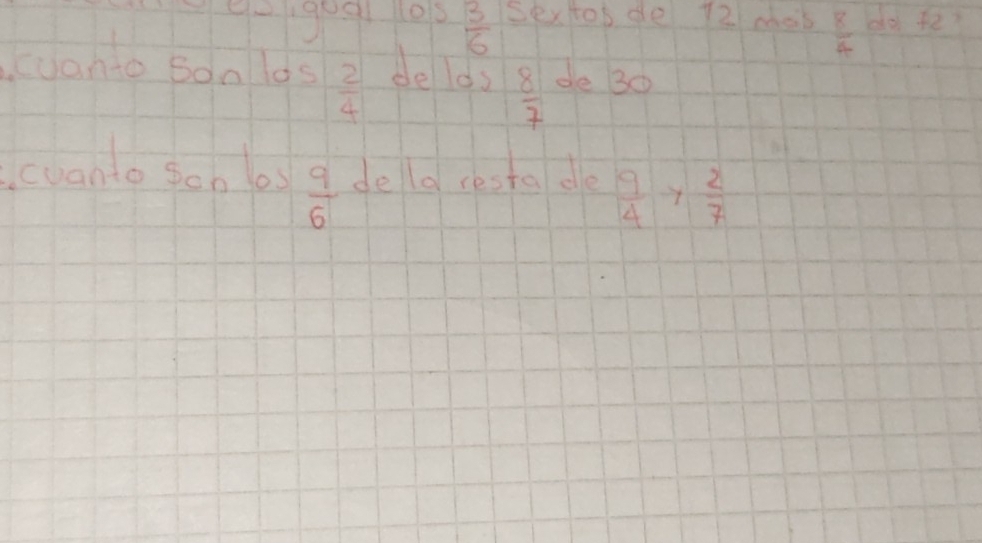 es igual los 3/6 sextos de 12 mas 8/4 de 12?
cuanto son los 2/4 de los 8/7 de 30
cuanto son los 9/6 de la resta de 9/4 y 2/7